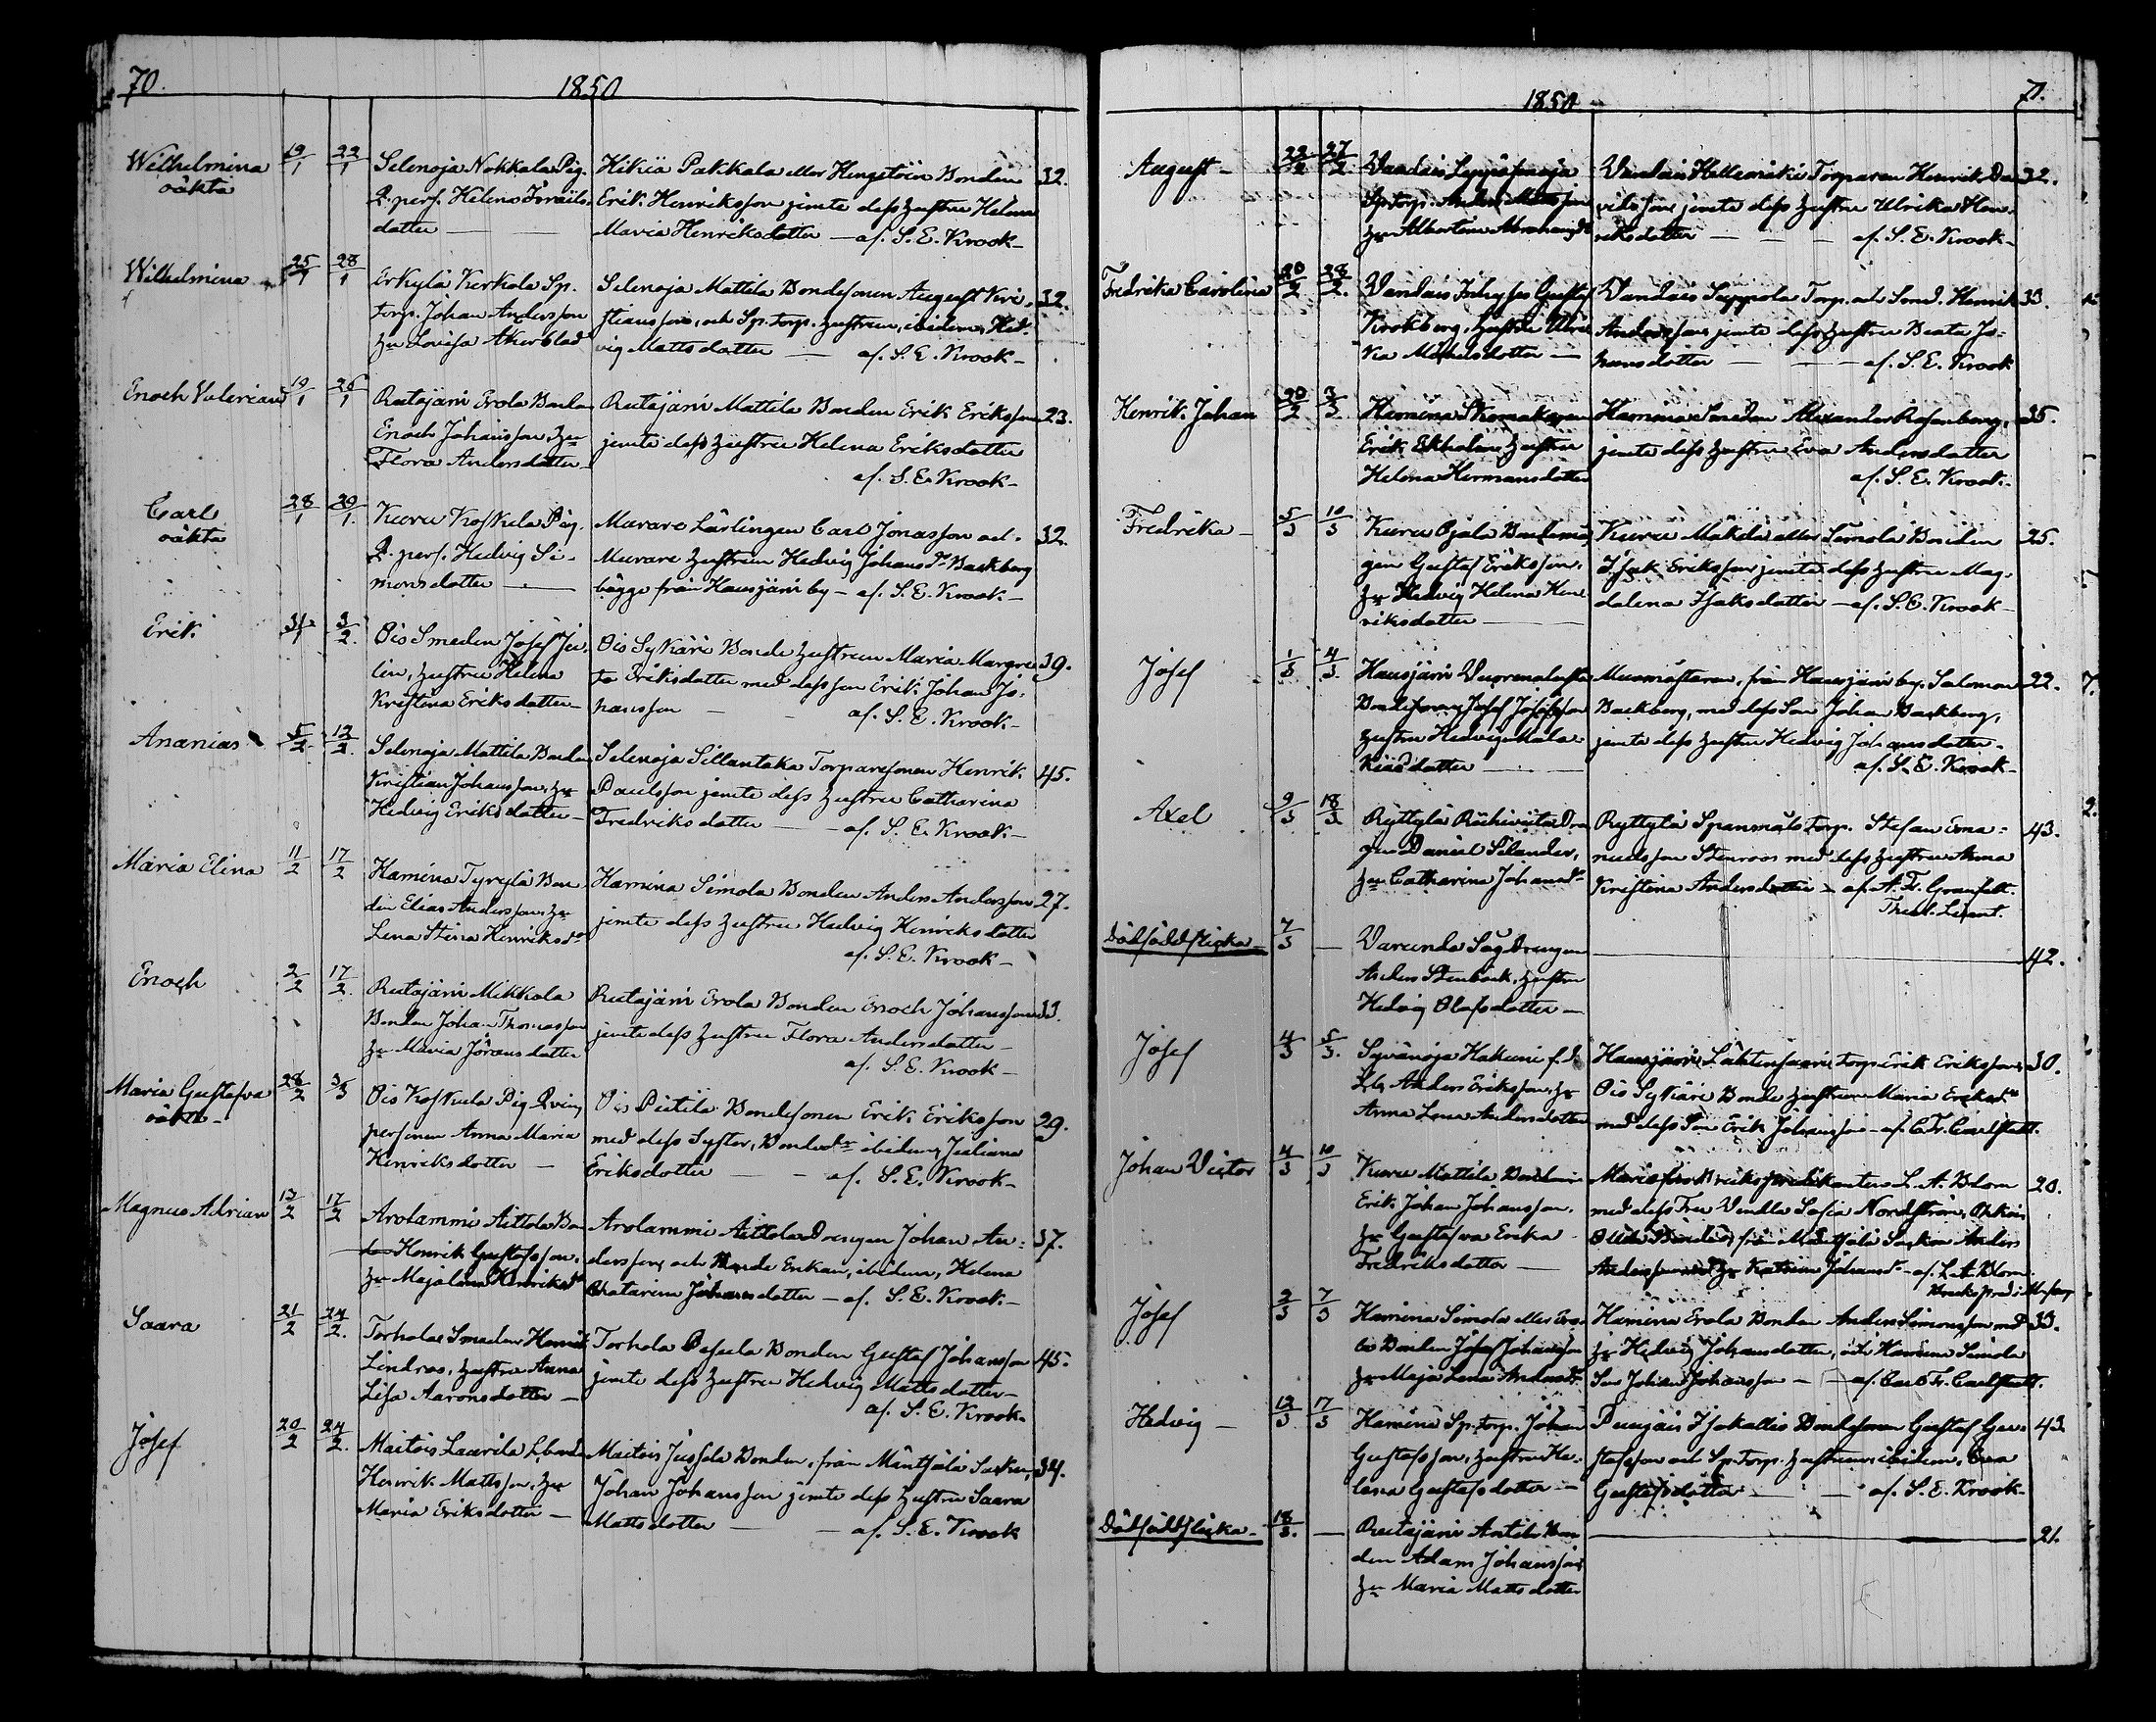 70. 1850
Wilhelmina 19/1 22/1 Selenoja Nokkala Pig. Hikiä Pakkala eller Hengstöin Bonden 32.
oäkta Q. pers. Helena Israëls- Erik Henriksson jemte dess hustru Helena
dotter — Maria Henriksdotter — af. S. E. Krook —
Wilhelmina 25/1 28/1 Erkylä Kerkola Sp. Selenoja Mattila Bondesonen August Kri- 32.
torp. Johan Andersson stiansson, och Sp. torp. hustrun, ibidem, Hed-
hu Lovisa Åkerblad vig Mattsdotter — af. S. E. Krook —
Enoch Valerian 19/1 26/1 Rutajärvi Erola Bonden Rutajärvi Mattila Bonden Erik Eriksson 23.
Enoch Johansson, hu jemte dess hustru Helena Eriksdotter
Flora Andersdotter — af. S. E. Krook —
Carl 28/1 29/1. Kuru Koskela Pig. Murare Lärlingen Carl Jonasson och 32.
oäkta Q. pers. Hedvig Si- Murare hustrun Hedvig Johansdr Backberg
monsdotter — bägge från Hausjärvi by — af. S. E. Krook —
Erik 31/1 3/2. Ois Smeden Josef Ois Sykäri Bonde hustrun Maria Margre- 39.
lin, hustru Helena ta Eriksdotter med dess son Erik Johan Jo-
Kristina Eriksdotter — hansson — af. S. E. Krook —
Ananias 5/2 12/2. Selenoja Mattila Bonden Selenoja Sillantaka Torparesonen Henrik 45.
Kristian Johansson, hu Paulsson jemte dess hustru Catharina
Hedvig Eriksdotter — Fredriksdotter — af. S. E. Krook —
Maria Elina 11/2 17/2 Hamina Tyrylä Bon- Hamina Simola Bonden Anders Andersson 27.
den Elias Andersson, hu jemte dess hustru Hedvig Henriksdotter
Lena Stina Henriksdr af. S. E. Krook —
Enoch 2/2 17/2. Rutajärvi Mikkola Rutajärvi Erola Bonden Enoch Johansson 33.
Bonden Johan Thomasson jemte dess hustru Flora Andersdotter —
hu Maria Göransdotter af. S. E. Krook —
Maria Gustafva 28/2 3/3 Ois Koskela Pig Qvins Ois Pietilä Bondesonen Erik Eriksson 29.
oäkta — personen Anna Maria med dess Syster, Bondedr ibidem, Juliana
Henriksdotter — Eriksdotter — af. S. E. Krook —
Magnus Adrian 13/2 17/2 Arolammi Aittola Bon- Arolammi Aittola Drengen Johan An- 37.
den Henrik Gustafsson, dersson, och Bonde Enkan, ibidem, Helena
hu Maja Lena Henriksdr Chatarina Johansdotter — af. S. E. Krook —
Saara 21/2 24/2. Torhola Smeden Henrik Torhola Pesula Bonden Gustaf Johansson 45.
Lindros, hustru Anna jemte dess hustru Hedvig Mattsdotter —
Lisa Aaronsdotter — af. S. E. Krook —
Josef 20/2 24/2. Maitois Laurila Bonden Maitois Jussila Bonden, från Mäntsälä Socken, 34.
Henrik Mattsson, hu Johan Johansson jemte dess hustru Saara
Maria Eriksdotter — Mattsdotter — af. S. E. Krook
1850 71.
August — 22/2 27/2. Vandais Torparen Henrik Da- 32.
Sp. torp. Anders Mattsson vidsson jemte dess hustru Ulrika Hen-
hu Albertina Abrahamsdr riksdotter — af. S. E. Krook —
Fredrika Carolina 20/2 28/2. Vandais Inhyses Gustaf Vandais Seppola Torp. och Smed. Henrik 33.
Krokberg, hustru Ulri- Andersson jemte dess hustru Beata Jo-
ka Michelsdotter — hansdotter — af. S. E. Krook
Henrik Johan 20/2 3/3 Hamina Skomakaren Hamina Smeden Alexander Rosenberg, 35.
Erik Ekholm hustru jemte dess hustru Eva Andersdotter
Helena Hermansdotter af. S. E. Krook —
Fredrika — 5/3 10/3 Kuru Ojala Bonde Kuru Mäkelä eller Simola Bonden 25.
Gustaf Eriksson, Isak Eriksson jemte dess hustru Mag-
hu Hedvig Helena Hen- dalena Isaksdotter — af. S. E. Krook —
riksdotter —
Josef 1/3 4/3. Hausjärvi Murmästaren, från Hausjärvi by, Salomon 22.
Bondesonen Josef Josefsson Backberg, med dess Son Johan Backberg,
hustru Hedvig Mala- jemte dess hustru Hedvig Johansdotter —
kiasdotter — af. S. E. Krook —
Axel 9/3 18/3. Ryttylä Dra- Ryttylä Spanmåls torp. Stefan Ema- 43.
gon Daniel Silander, nuelsson Stenroos med dess hustru Anna
hu Catharina Johansdr Kristina Andersdotter — af. A. F. Granfelt
Theol. Licent.
Dödfödd flicka — 7/3 — Varunda Såg Drengen — 42.
Anders Stenbäck, hustru
Hedvig Olofsdotter —
Josef 4/3 5/3. Syvänoja Hakuni f. d. Hausjärvi torp. Erik Eriksson, 30.
Anders Eriksson, hu Ois Sykäri Bonde hustrun Maria Eriksdr
Anna Lena Andersdotter med dess Son Erik Johansson — af. C. Fr. Carlstedt.
Johan Victor 4/3 10/3 Kuru Mattila Bonden Mariefors Brukspredikanten L. A. Blom 20.
Erik Johan Johansson, med dess Fru Vendla Sofia Nordström,
hu Gustafva Erika från Mäntsälä Socken Anders
Fredriksdotter — Andersson med hu Katrina Johansdr — af. L. A. Blom
Bruks pred:
Josef 2/3 7/3 Hamina Simola eller Ero- Hamina Erola Bonden Anders Simonsson med 33.
la Bonden Josef Johansson hu Hedvig Johansdotter, och Hamina Simola
hu Maja Lena Andersdr Son Johan Johansson — af. Carl Fr. Carlstedt.
Hedvig — 12/3 17/3 Hamina Sp. torp. Johan Bondesonen Gustaf Gu- 43.
Gustafsson, hustru He- stafsson och Sp. torp. hustrun, ibidem, Eva
lena Gustafsdotter — Gustafsdotter — af. S. E. Krook —
Dödfödd flicka — 18/3. — Rutajärvi Antila Bon- — 21.
den Adam Johansson,
hu Maria Mattsdotter